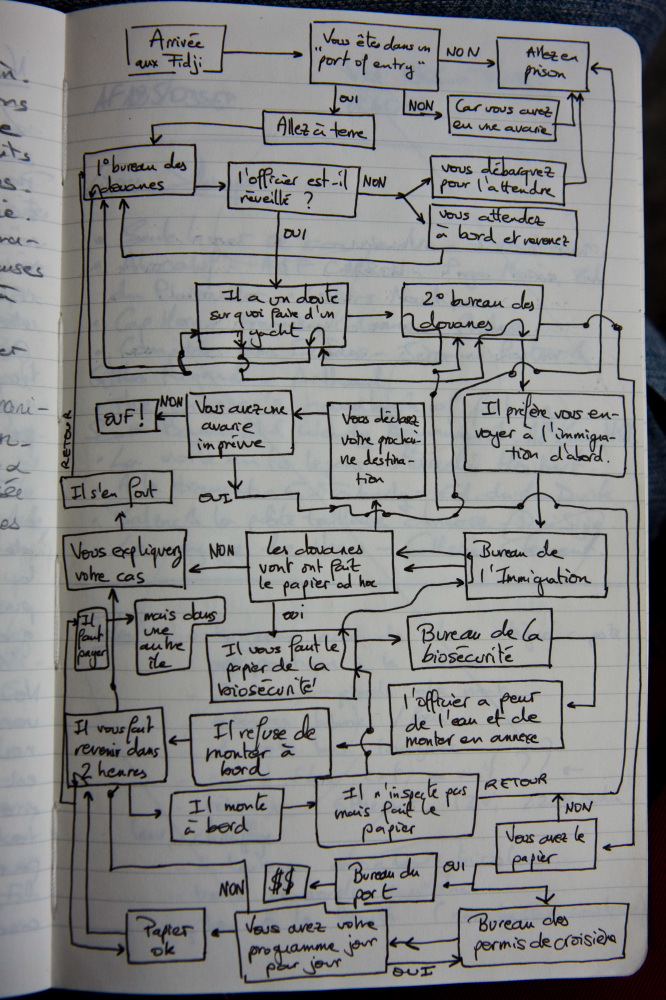 Arrivée
aux Fidji
"Vous êtes dans un
port of entry"
NON
Allez en
prison
OUI
NON
Car vous avez
eu une avarie
Allez à terre
1° bureau des
douanes
l'officier est-il
réveillé ?
NON
vous débarquez
pour l'attendre
vous attendez
à bord et revenez
OUI
Il a un doute
sur quoi faire d'un
yacht
2° bureau des
douanes
OUF !
NON
Vous avez une
avarie
imprévue
Vous déclarez
votre prochai-
ne destina-
tion
Il préfère vous en-
voyer à l'immigra-
tion d'abord.
RETOUR
OUI
Il s'en fout
Vous expliquez
votre cas
NON
Les douanes
vont ont fait
le papier ad hoc
Bureau de
l'Immigration
OUI
Il
faut
payer
mais dans
une
autre
île
Il vous faut le
papier de la
biosécurité
Bureau de la
biosécurité
l'officier a peur
de l'eau et de
monter en annexe
Il vous faut
revenir dans
2 heures
Il refuse de
monter à
bord
Il monte
à bord
Il n'inspecte pas
mais fait le
papier
RETOUR
NON
Vous avez le
papier
OUI
$$
Bureau du
port
NON
Papier
ok
Vous avez votre
programme jour
par jour
OUI
Bureau des
permis de croisière